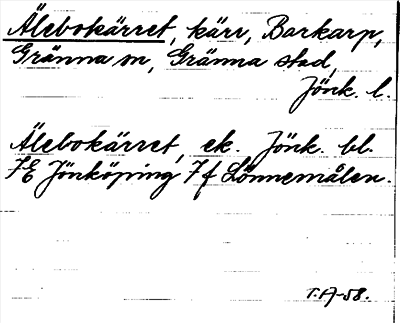 Älebokärret, kärr, Barkarp,
Gränna sn, Gränna stad,
Jönk. l.
Älebokärret, ek. Jönk. bl.
7E Jönköping 7f Lönnemålen.
T.A-58.